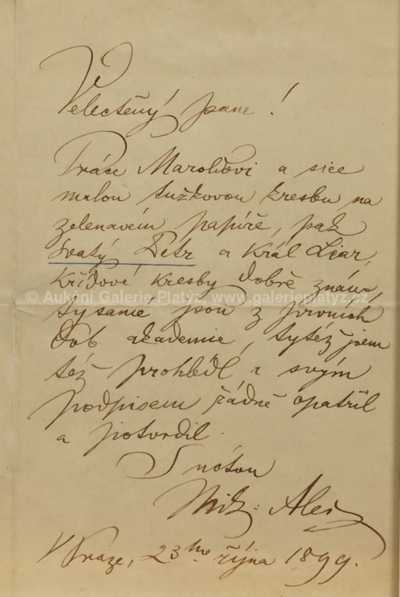 Velectěný pane!
Práce Maroldovi a sice
malou tužkovou kresbu na
zelenavém papíře, pak
Svatý Petr a Král Lear,
křídové kresby dobře znám
© Aukční Galerie Platýz, www.galerieplatyz.cz
jsou z prvních
dob akademie, tytéž jsem
též prohlédl i svým
podpisem řádně opatřil
a potvrdil.
S úctou
Mik: Aleš
V Praze, 23ho října 1899.